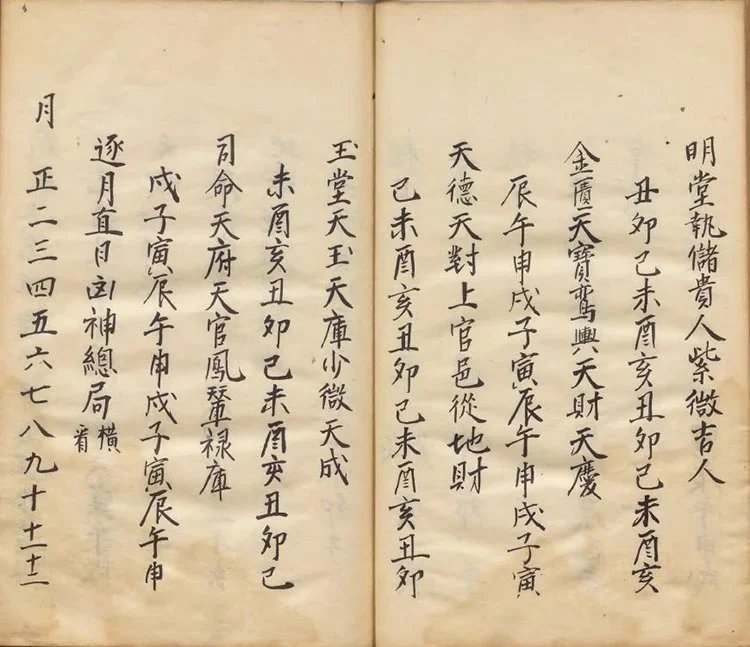 明堂執儲貴人紫微吉人
丑卯巳未酉亥丑卯巳未酉亥
金匱天寶鸞輿天財天慶
辰午申戌子寅辰午申戌子寅
天德天對上官邑從地財
巳未酉亥丑卯巳未酉亥丑卯
玉堂天玉天庫少微天成
未酉亥丑卯巳未酉亥丑卯巳
司命天府天官鳳輦祿庫
戌子寅辰午申戌子寅辰午申
逐月直日凶神總局橫看
月 正二三四五六七八九十十一十二